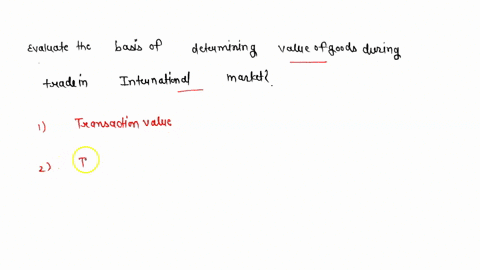 Evaluate the basis of determining value of goods during
trade in International market?
1) Transaction value
2) T